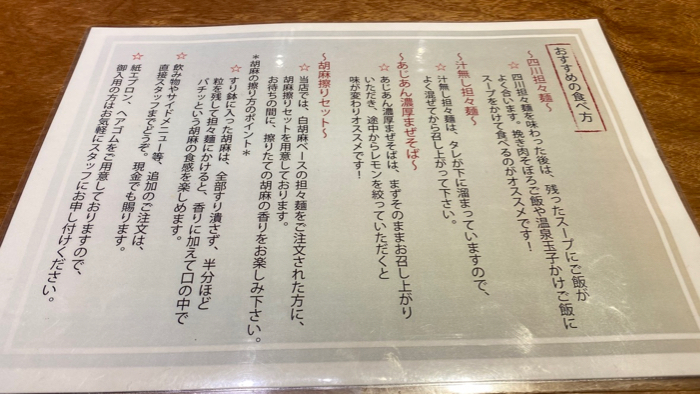 おすすめの食べ方
～四川担々麺～
☆四川担々麺を味わった後は、残ったスープにご飯が
よく合います。挽き肉そぼろご飯や温泉玉子かけご飯に
スープをかけて食べるのがオススメです！
～汁無し担々麺～
☆汁無し担々麺は、タレが下に溜まっていますので、
よく混ぜてから召し上がって下さい。
～あじあん濃厚まぜそば～
☆あじあん濃厚まぜそばは、まずそのままお召し上がり
いただき、途中からレモンを絞っていただくと
味が変わりオススメです！
～胡麻擦りセット～
☆当店では、白胡麻ベースの担々麺をご注文された方に、
胡麻擦りセットを用意しております。
お待ちの間に、擦りたての胡麻の香りをお楽しみ下さい。
＊胡麻の擦り方のポイント＊
☆すり鉢に入った胡麻は、全部すり潰さず、半分ほど
粒を残して担々麺にかけると、香りに加えて口の中で
パチッという胡麻の食感を楽しめます。
☆飲み物やサイドメニュー等、追加のご注文は、
直接スタッフまでどうぞ。現金でも賜ります。
☆紙エプロン、ヘアゴムをご用意しておりますので、
御入用の方はお気軽にスタッフにお申し付けください。